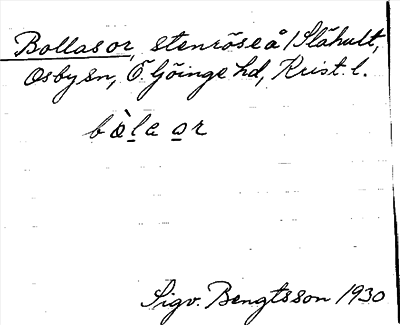 Bollasor, stenröse å Slähult,
Osby sn, Ö. Göinge hd, Krist. l.
bòla or
Sigv. Bengtsson 1930